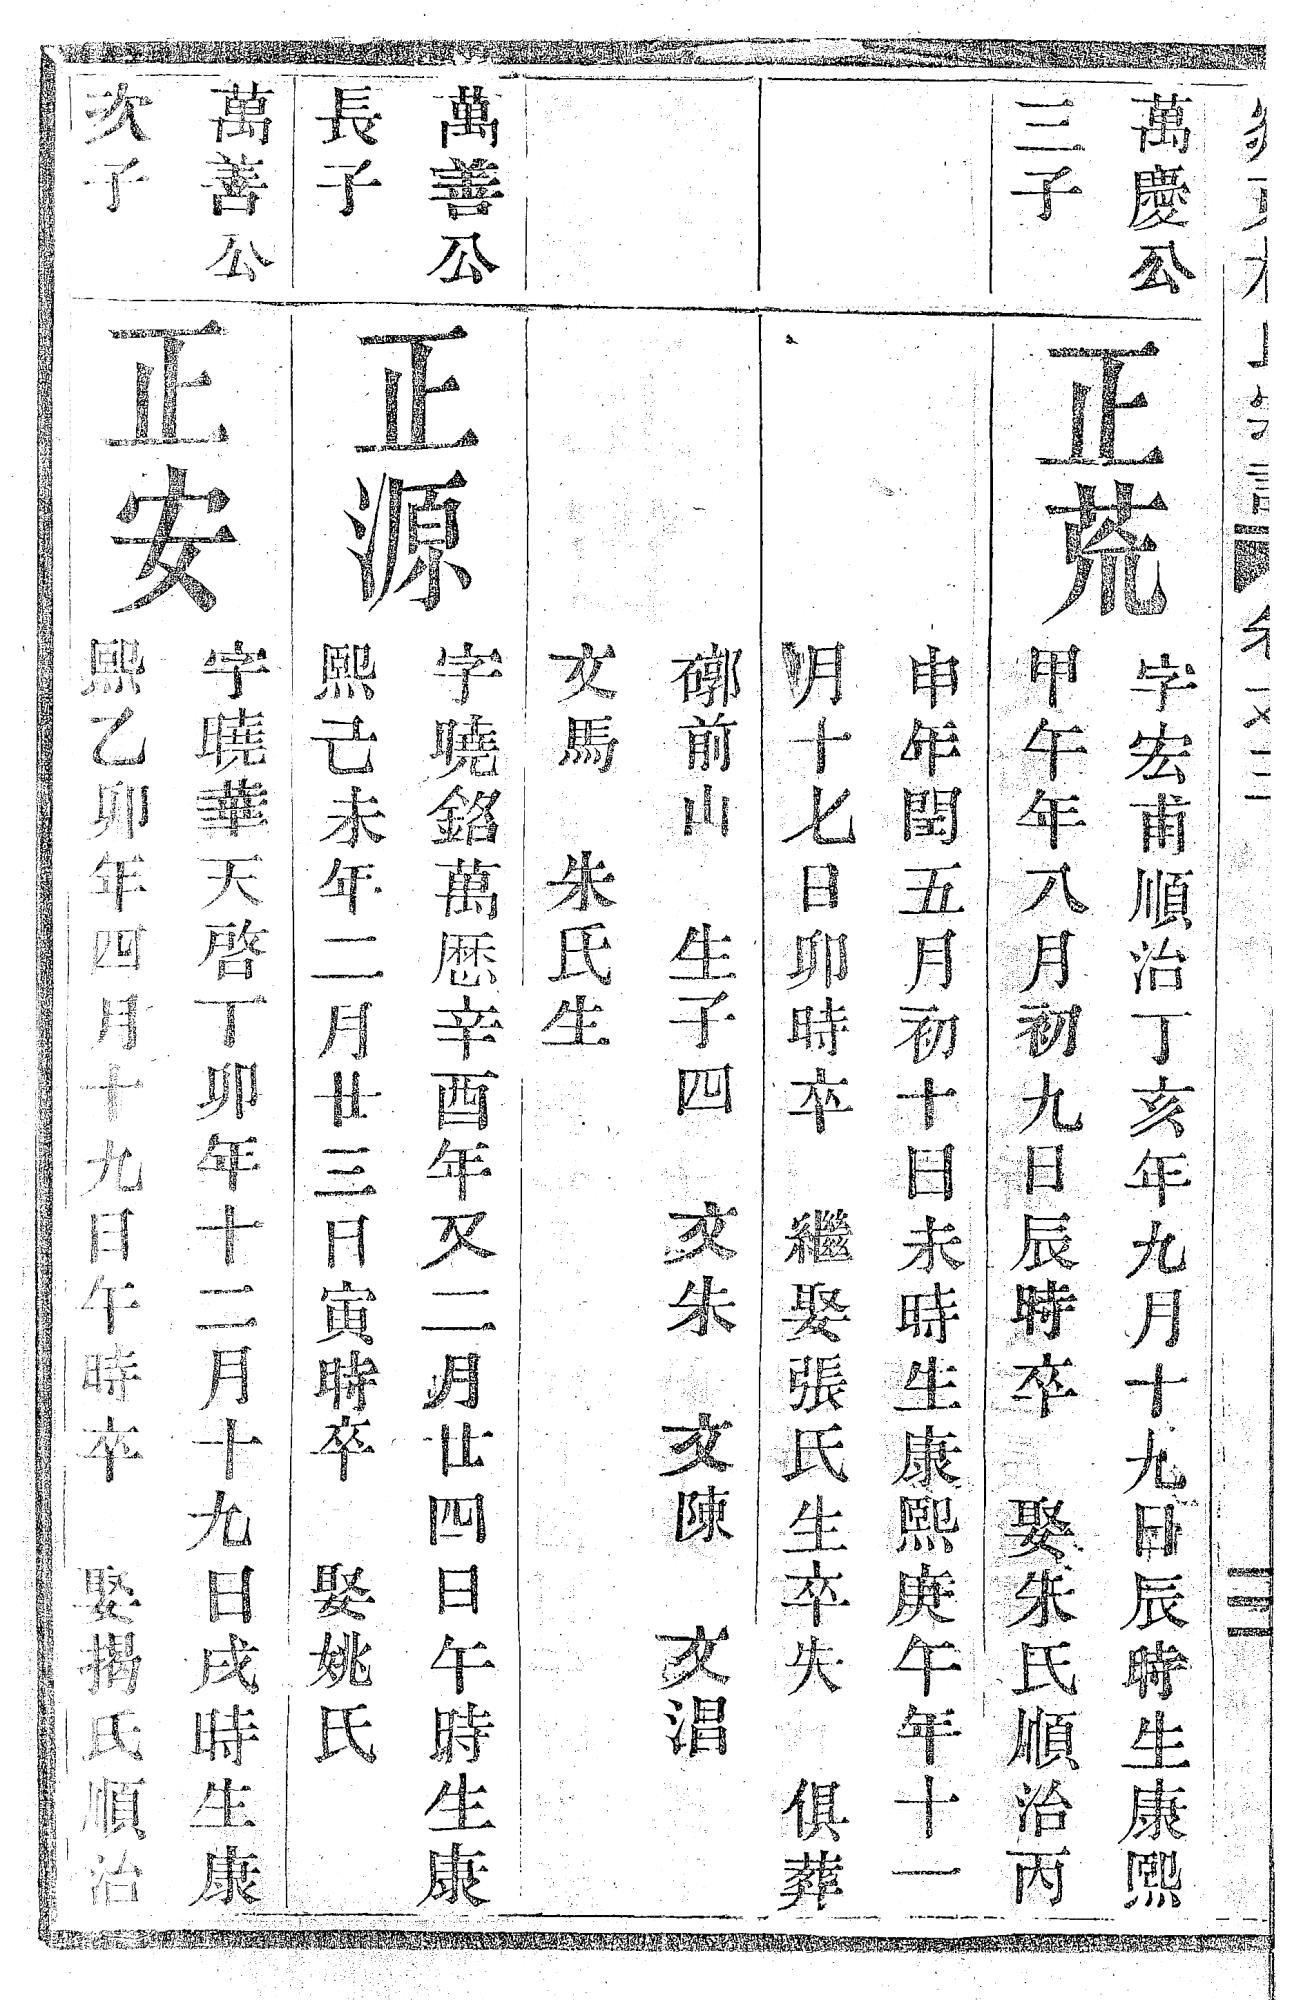 萬慶公
三子
正荒
字宏甫順治丁亥年九月十九日辰時生康熙
甲午年八月初九日辰時卒　娶朱氏順治丙
申年閏五月初十日未時生康熙庚午年十一
月十七日卯時卒　繼娶張氏生卒失　俱葬
鄉前山　生子四　文朱　文陳　文淐
文馬　朱氏生
萬善公
長子
正源
字曉銘萬厯辛酉年又二月廿四日午時生康
熙己未年二月廿三日寅時卒　娶姚氏
萬善公
次子
正安
字曉華天啓丁卯年十二月十九日戌時生康
熙乙卯年四月十九日午時卒　娶揭氏順治